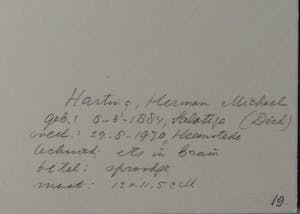 Harting, Herman Michael
geb.: 8-3-1884, Salatiga (Dëch)
overl.: 29-8-1970, Heemstede
techniek: ets in bruin
titel: sprookje
maat: 12 x 11,5 cM
19.